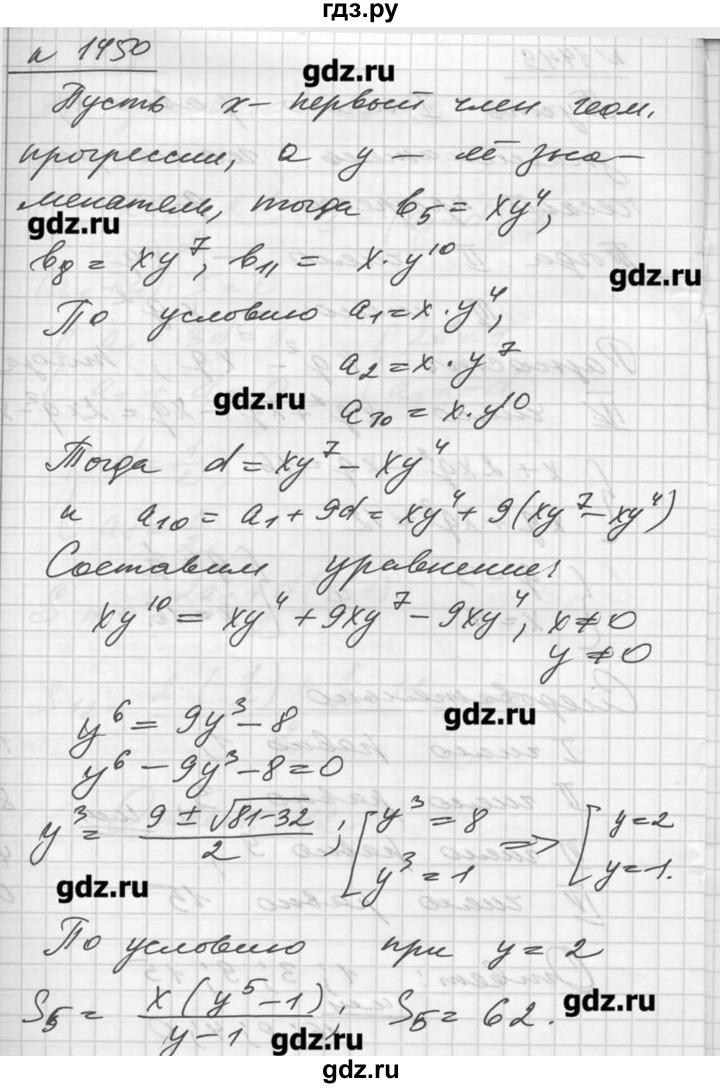 гдз.ру
n 1450
gdz.ru
Пусть x - первый член геом.
прогрессии, а y - её зна-
менатель, тогда b₅ = xy⁴,
gdz.ru
b₈ = xy⁷, b₁₁ = x·y¹⁰
gdz.ru
По условию a₁ = x·y⁴,
a₂ = x·y⁷
gdz.ru
a₁₀ = x·y¹⁰
Тогда d = xy⁷ - xy⁴
и a₁₀ = a₁ + 9d = xy⁴ + 9(xy⁷ - xy⁴)
Составим уравнение:
xy¹⁰ = xy⁴ + 9xy⁷ - 9xy⁴, x ≠ 0
y ≠ 0
y⁶ = 9y³ - 8
gdz.ru
y⁶ - 9y³ - 8 = 0
y³ = (9 ± √(81-32))/2 ; [y³ = 8 => [y = 2
y³ = 1 y = 1.
gdz.ru
По условию при y = 2
S₅ = x(y⁵ - 1)/(y - 1), S₅ = 62.
gdz.ru
gdz.ru
гдз.ру